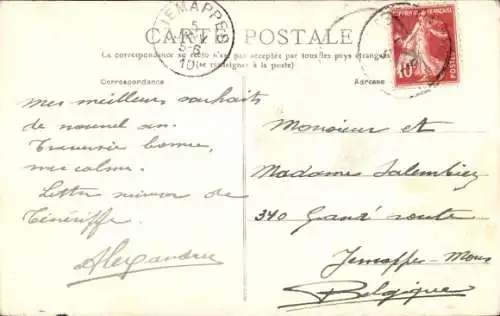 CARTE POSTALE
JEMAPPES
5
5-6
10
La correspondance au recto n'est pas acceptée par tous les pays étrangers
(se renseigner à la poste)
Correspondance
Adresse
10c
POSTES
Mes meilleurs souhaits
de nouvel an.
Traversée bonne,
mer calme.
Lettre suivra de
Ténériffe.
Alexandre
Monsieur et
Madame Salembiez
340 Grand' route
Jemappes-Mons
Belgique